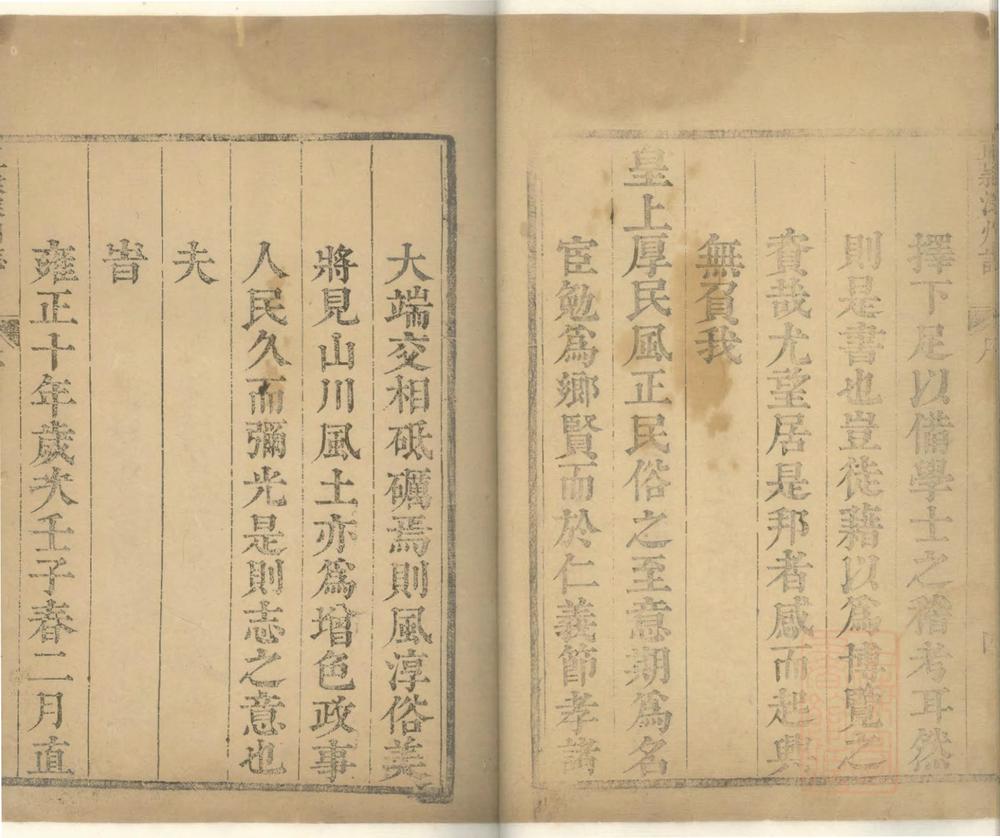 擇下足以備學士之稽考耳然
則是書也豈徒藉以為博覽之
資哉尤望居是邦者感而起興
無負我
皇上厚民風正民俗之至意期為名
宦勉為鄉賢而於仁義節孝諸
大端交相砥礪焉則風淳俗美
將見山川風土亦為增色政事
人民久而彌光是則志之意也
夫
旹
雍正十年歲次壬子春二月直